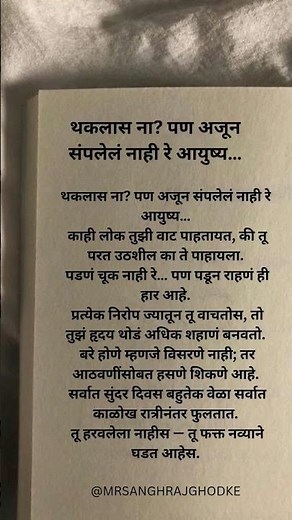 थकलास ना? पण अजून
संपलेलं नाही रे आयुष्य...
थकलास ना? पण अजून संपलेलं नाही रे
आयुष्य...
काही लोक तुझी वाट पाहतायत, की तू
परत उठशील का ते पाहायला.
पडणं चूक नाही रे... पण पडून राहणं ही
हार आहे.
प्रत्येक निरोप ज्यातून तू वाचतोस, तो
तुझं हृदय थोडं अधिक शहाणं बनवतो.
बरे होणे म्हणजे विसरणे नाही; तर
आठवणींसोबत हसणे शिकणे आहे.
सर्वात सुंदर दिवस बहुतेक वेळा सर्वात
काळोख रात्रीनंतर फुलतात.
तू हरवलेला नाहीस — तू फक्त नव्याने
घडत आहेस.
@MRSANGHRAJGHODKE